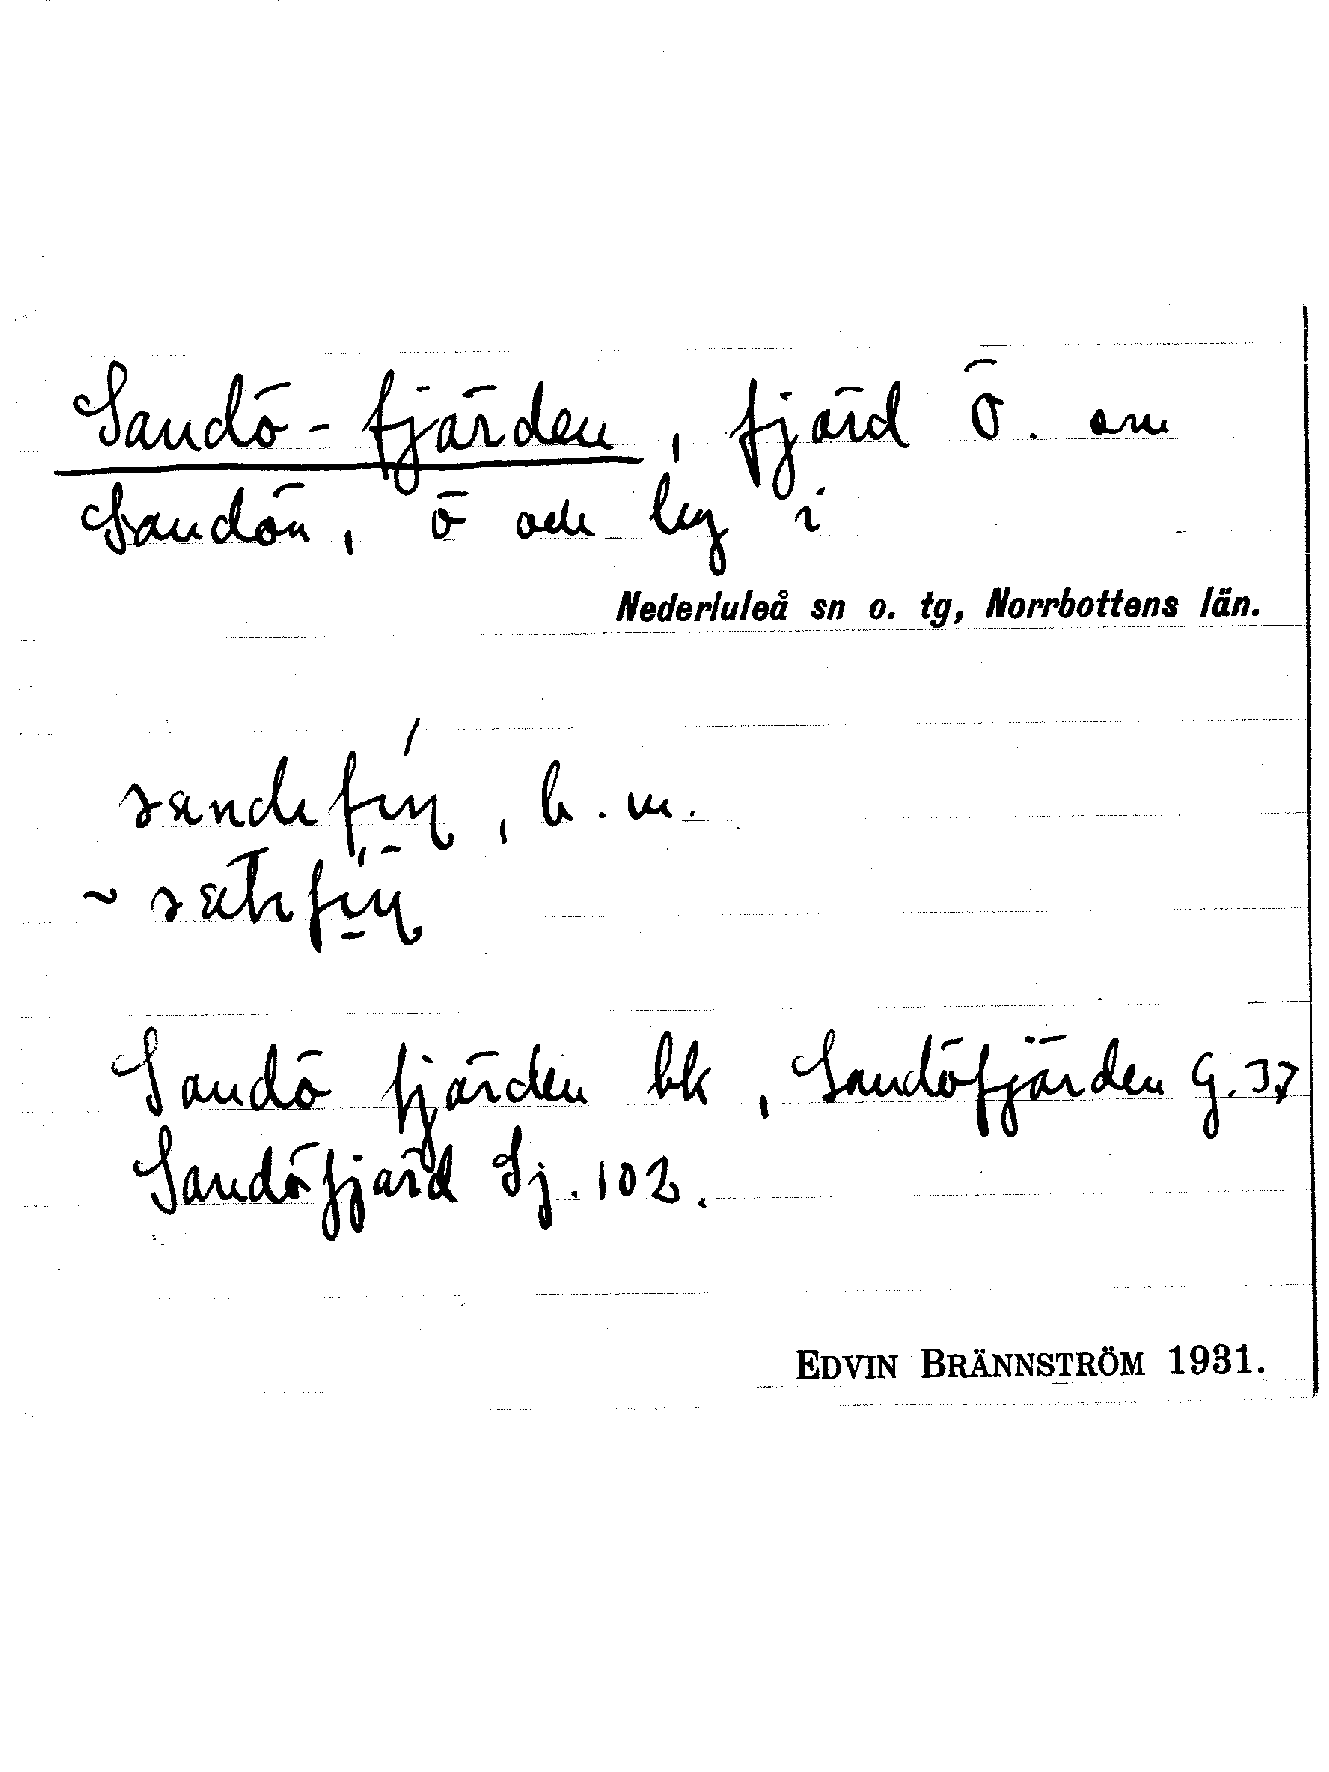 Sandö-fjärden, fjärd Ö. om
Sandön, ö och lhg i
Nederluleå sn o. tg, Norrbottens län.
, b. m.
~
Sandö fjärden bk, Sandöfjärden G. 37
Sandöfjärd Sj. 102.
EDVIN BRÄNNSTRÖM 1931.